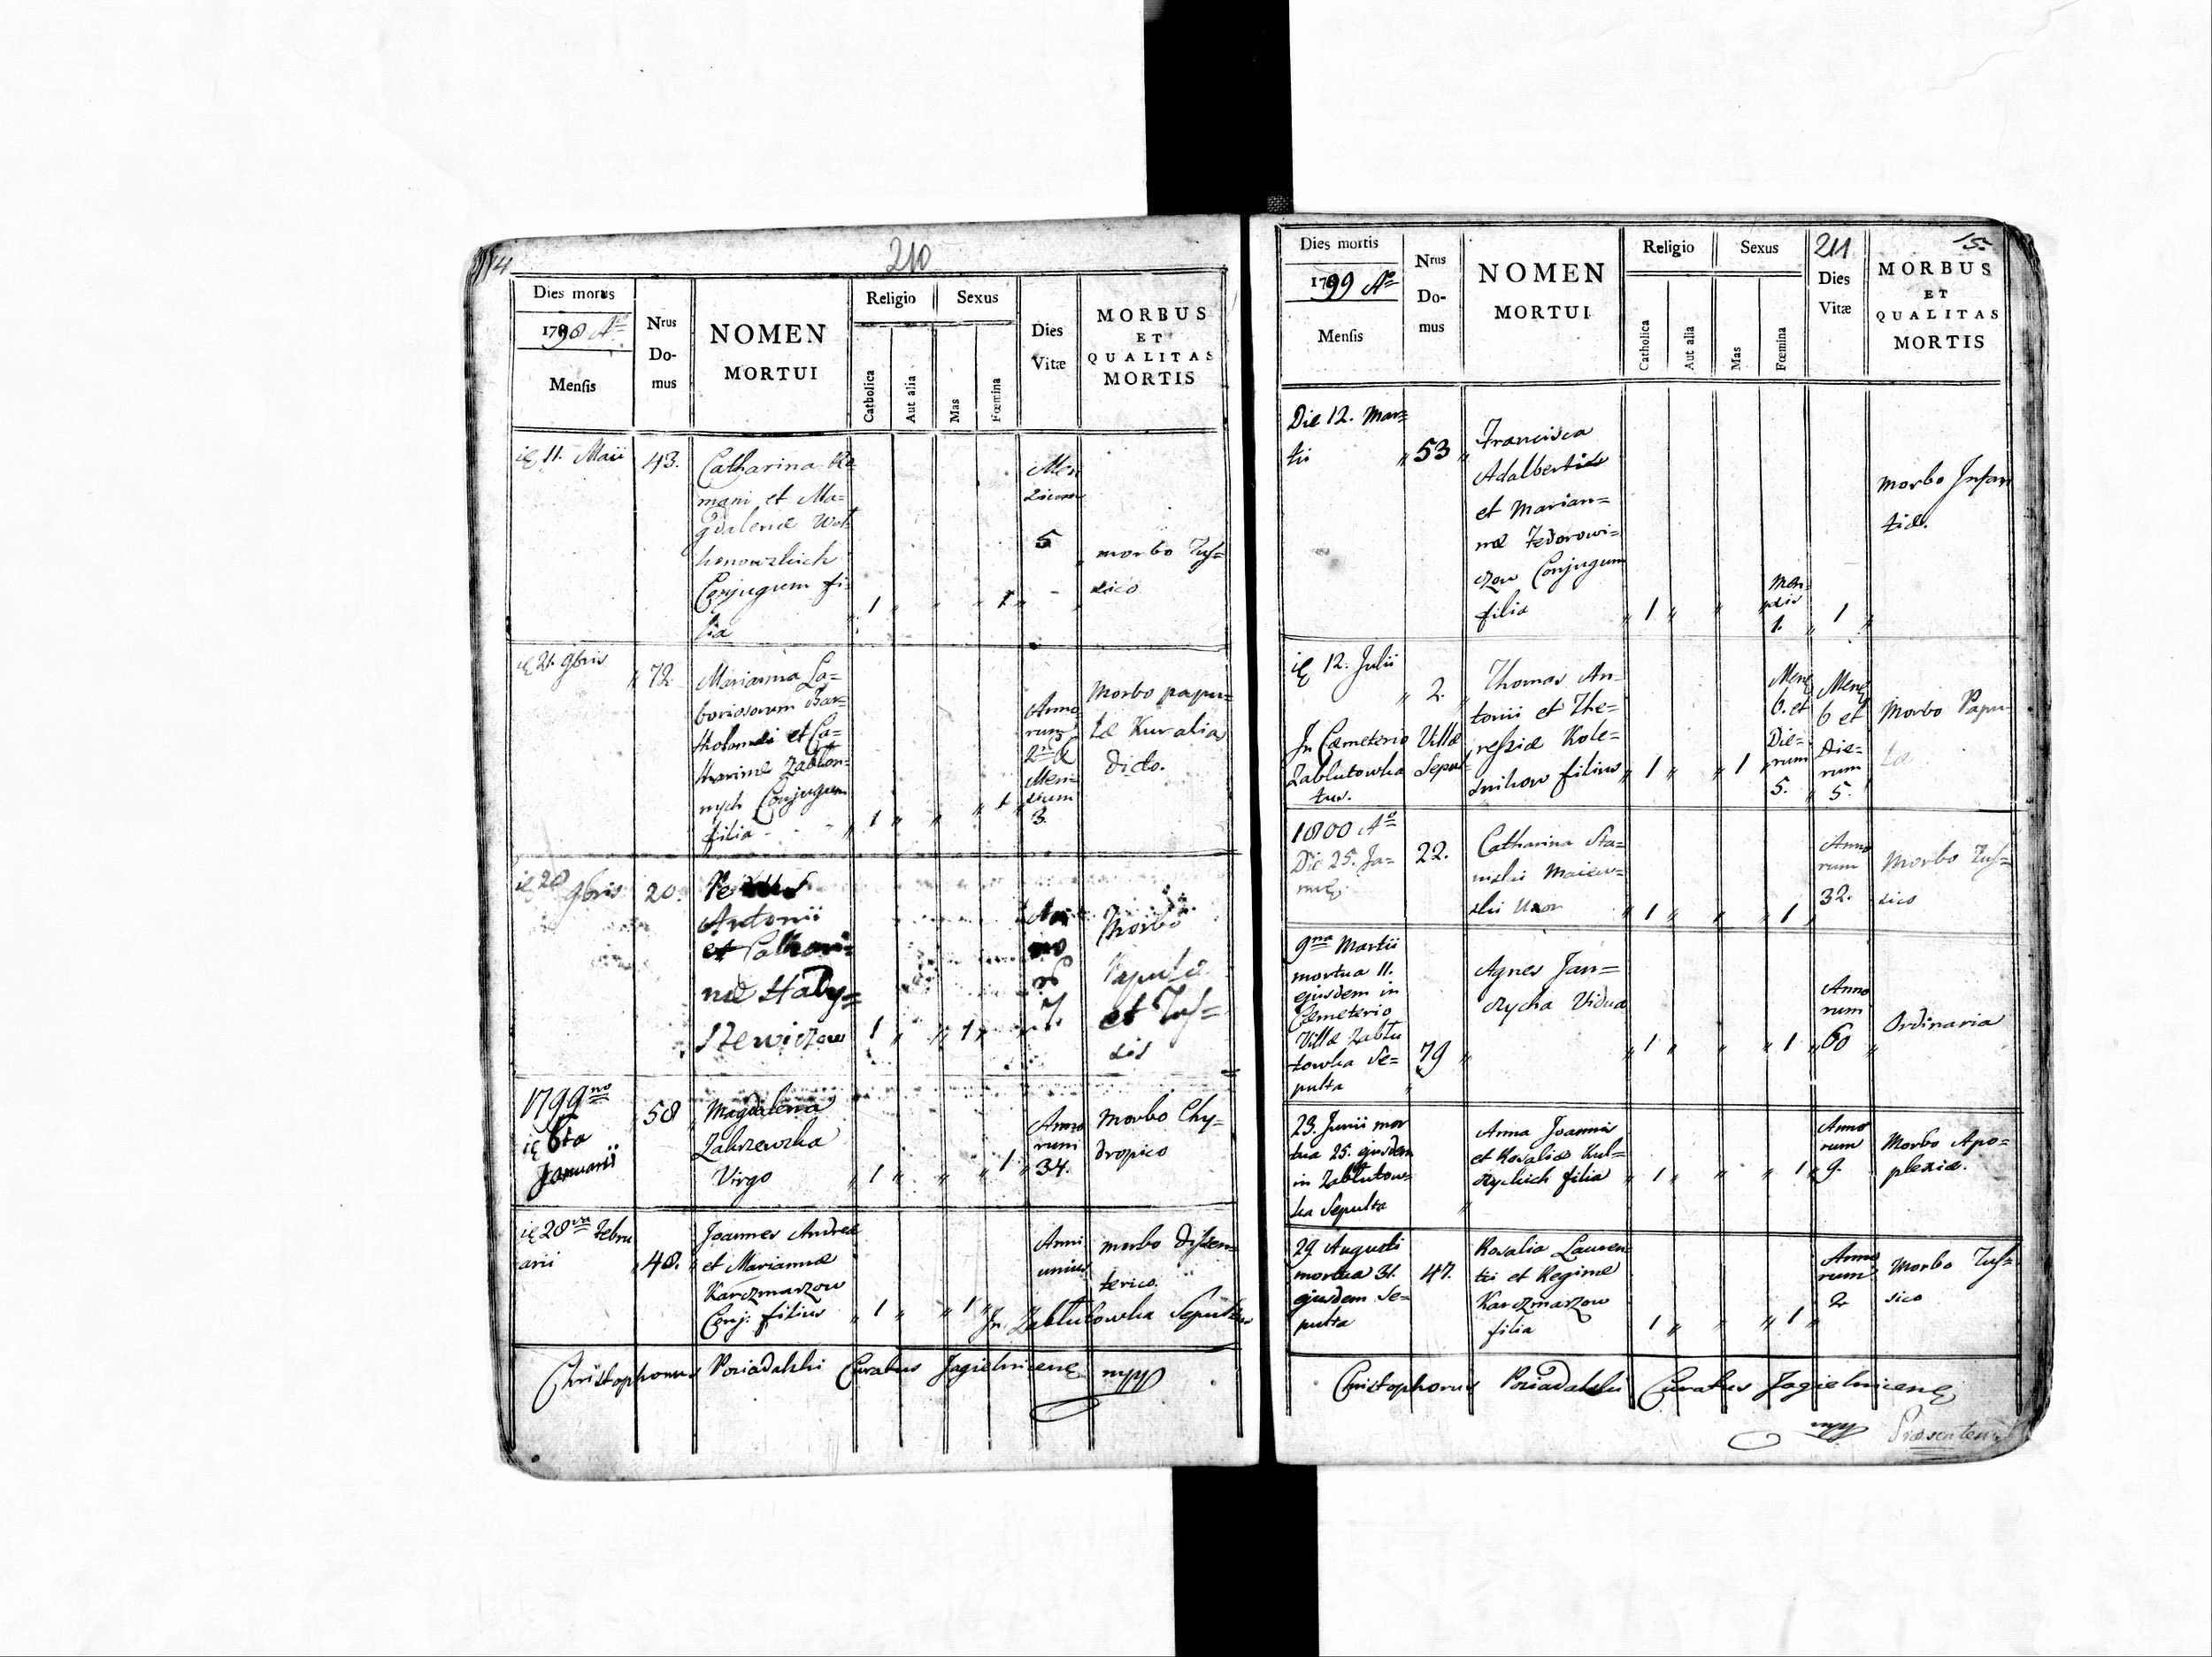 210
Dies mortis
1798 Aō
Mensis
Nrus
Do-
mus
NOMEN
MORTUI
Religio
Sexus
Catholica
Aut alia
Mas
Fœmina
Dies
Vitæ
MORBUS
ET
QUALITAS
MORTIS
11. Maii
43.
Catharina Ro
mani et Ma=
gdalenæ
Conjugum fi=
lia
1 1
Men
sium
5
morbo Tus=
sico
21. 9bris
72.
Marianna La=
boriosorum Bar=
tholomæi et Ca=
tharinæ Zablon=
nych Conjugum
filia
1 1
Anno
rum
2
Men
sium
3.
Morbo papu=
læ Kuralia
dicto.
20 9bris
20.
Antonii
et Cathari=
næ Hady=
1 1
Morbo
et Tus=
sis
1799no
6ta
Januarii
58
Magdalena
Zakrzewska
Virgo
1 1
Anno
rum
34.
Morbo Chy=
dropico
28va Febru
arii
48.
Joannes Andreæ
et Mariannæ
Karczmarzow
Conj: filius
1 1
Anni
unius
morbo dissen=
terico.
In Zablutowka Sepultus
Christophorus Poriadalski Curatus Jagielnicens mpp
211
15.
Dies mortis
1799 Aō
Mensis
Nrus
Do-
mus
NOMEN
MORTUI
Religio
Sexus
Catholica
Aut alia
Mas
Fœmina
Dies
Vitæ
MORBUS
ET
QUALITAS
MORTIS
Die 12. Mar=
tii
53
Francisca
Adalberti
et Marian=
næ Fedorowi=
czow Conjugum
filia
1
Men
sis
1.
1
Morbo Infan
tiæ.
12. Julii
2.
In Cæmeterio Villæ
Zablutowka Sepul
tus.
Thomas An=
tonii et The=
ressiæ Kole=
snikow filius
1 1
Mens
6. et
Die=
rum
5.
Mens
6 et
Die=
rum
5.
Morbo Papu=
la
1800 Aō
Die 25. Ja=
nu
22.
Catharina Sta=
nislai Maiew=
ski Uxor
1 1
Anno
rum
32.
Morbo Tus=
sico
9na Martii
mortua 11.
ejusdem in
Cemeterio
Villæ Zablu
towka Se=
pulta
79
Agnes Jan=
czycha Vidua
1 1
Anno
rum
60
Ordinaria
23. Junii mor
tua 25. ejusdem
in Zablutow=
ka Sepulta
Anna Joannis
et Rosaliæ Kul=
czyckich filia
1 1
Anno
rum
9.
Morbo Apo=
plexiæ.
29 Augusti
mortua 31.
ejusdem Se=
pulta
47.
Rosalia Lauren
tii et Reginæ
Karczmarzow
filia
1 1
Anno
rum
2
Morbo Tus=
sico
Christophorus Poriadalski Curatus Jagielnicens
mpp